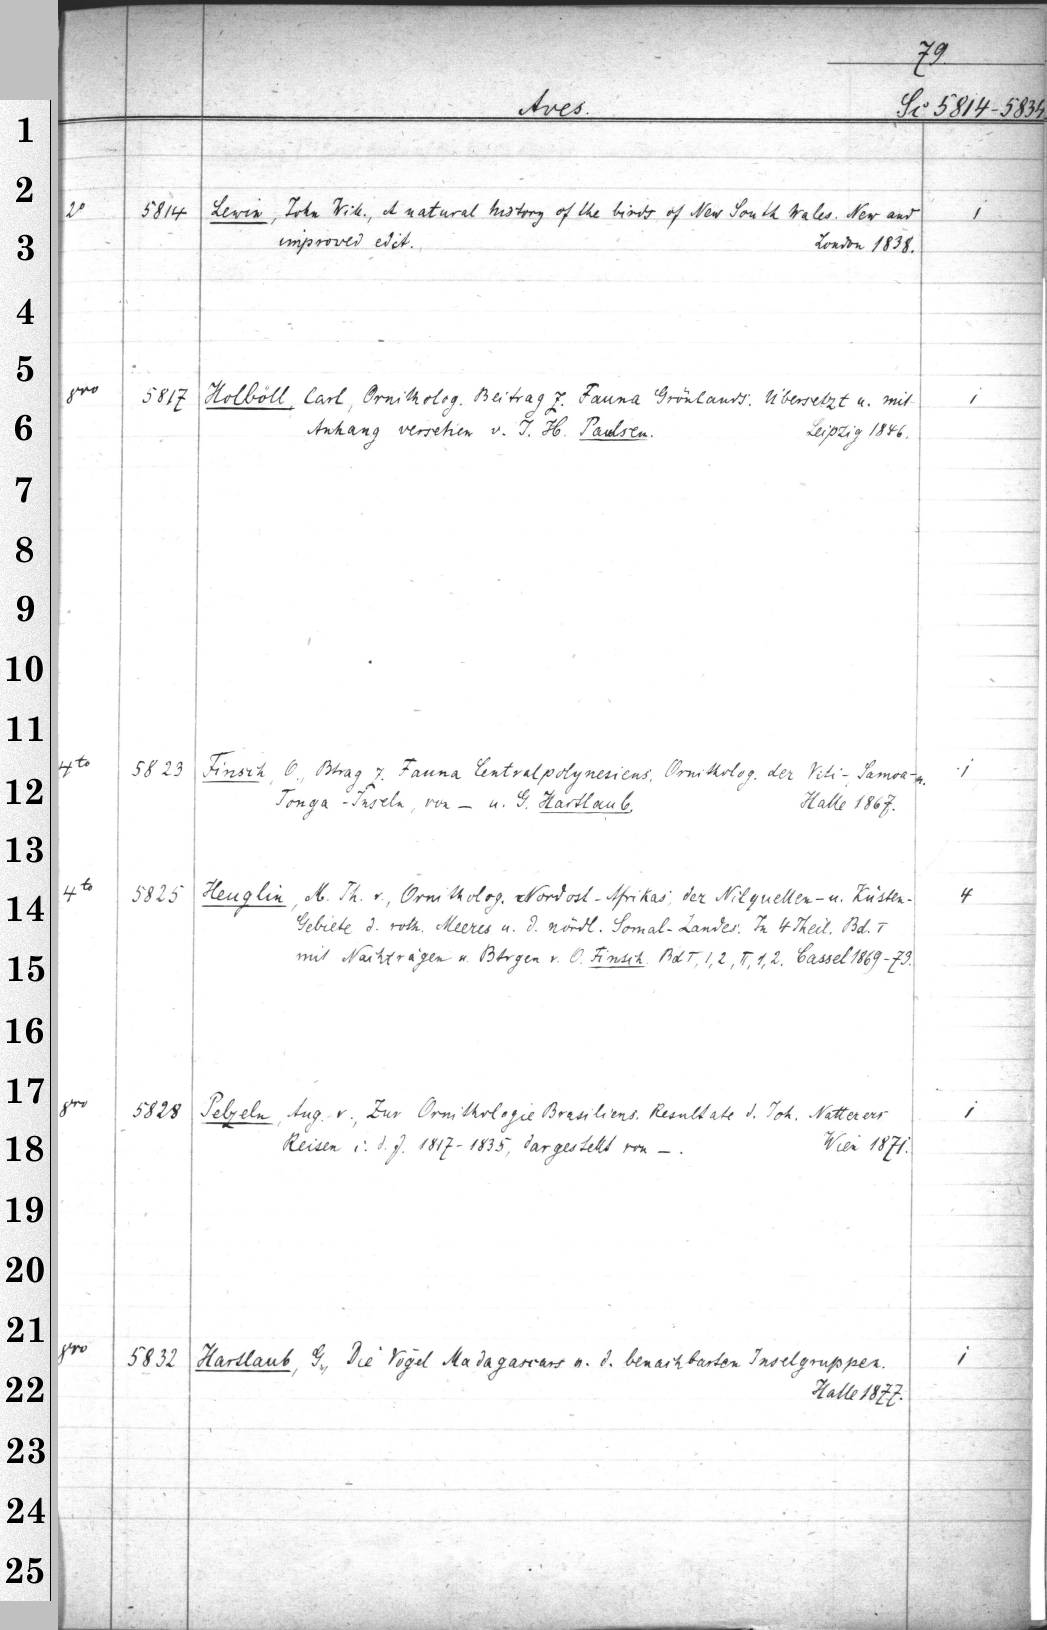 79.
Aves. Sc 5814-5834
1
2
2° 5814 Lewin, John Will., A natural history of the birds of New South Wales. New and 1
3 improved edit. London 1838.
4
5
8vo 5817 Holböll, Carl, Ornitholog. Beitrag z. Fauna Grönlands. Übersetzt u. mit 1
6 Anhang versehen v. J. H. Paulsen. Leipzig 1846.
7
8
9
10
11
4to 5823 Finsch, O., Btrag z. Fauna Centralpolynesiens. Ornitholog. der Viti-, Samoa- u. 1
12 Tonga-Inseln, von — u. G. Hartlaub. Halle 1867.
13
4to 5825 Heuglin, M. Th. v., Ornitholog. Nordost-Afrikas, der Nilquellen- u. Küsten- 4
14 Gebiete d. roth. Meeres u. d. nördl. Somal-Landes. In 4 Theil. Bd. I
15 mit Nachträgen u. Btrgen v. O. Finsch. Bd I, 1, 2, II, 1, 2. Cassel 1869-73.
16
17
8vo 5828 Pelzeln, Aug. v., Zur Ornithologie Brasiliens. Resultate d. Joh. Natterers 1
18 Reisen i. d. J. 1817-1835, dargestellt von —. Wien 1871.
19
20
21
8vo 5832 Hartlaub, G., Die Vögel Madagascars u. d. benachbarten Inselgruppen. 1
22 Halle 1877.
23
24
25